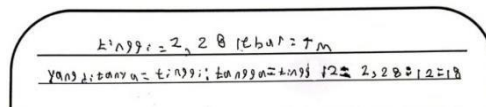 tinggi = 2,28 lebar = 1m
Yang ditanya = tinggi: tangga = tinggi 12 = 2,28 = 12 = 18